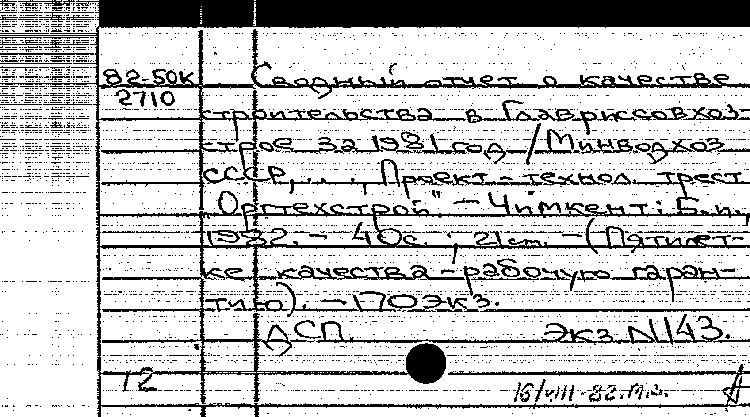 82-50К Сводный отчет о качестве
2710
строительства в Главриссовхоз-
строе за 1981 год / Минводхоз
СССР,..., Проект.-технол. трест
"Оргтехстрой". - Чимкент: Б.и.,
1982. - 40с. ; 21см. - (Пятилет-
ке качества - рабочую гаран-
тию). - 170 экз.
ДСП. Экз. N143.
12
16/VIII-82.